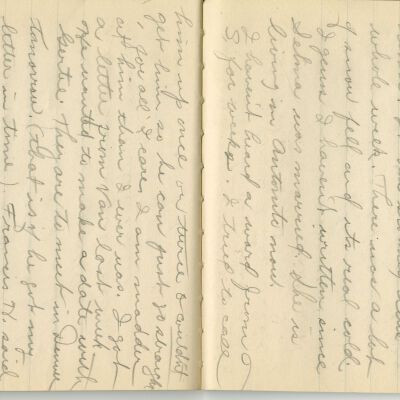 whole week. There was a lot
of snow fell and its real cold.
I guess I haven't written since
Selma was married. She is
living in Antonito now.
I haven't heard a word from O
S for weeks. I tried to call
him up once or twice & couldn't
get him so he can just go straight
for all I care, I am madder
at him than I ever was. I got
a letter from Van last week
wanted to make a date with
Gertie. They are to meet in Denver
Tomorrow. (that is if he got my
letter in time) Francis H. said